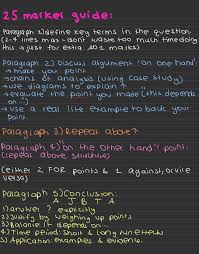 25 marker guide:
Paragraph 1) define key terms in the question
(2-4 lines max - don't waste too much time doing
this - just for extra A01 marks)
Paragraph 2) Discuss argument 'on one hand'
→ make your point
→ chains of analysis (using case study)
→ use diagrams to explain ↑
→ evaluate the point you made (this depends
on...)
→ use a real life example to back your
point.
Paragraph 3) Repeat above ↑
Paragraph 4) "on the other hand" point
(repeat above structure)
(either 2 FOR points & 1 against, or vice
versa)
Paragraph 5) Conclusion:
A J B T A
1) answer? explicitly
2) Justify by weighing up points
3) Balance it depends on...
4) Time period short & long run effects
5) Application: examples & evidence.